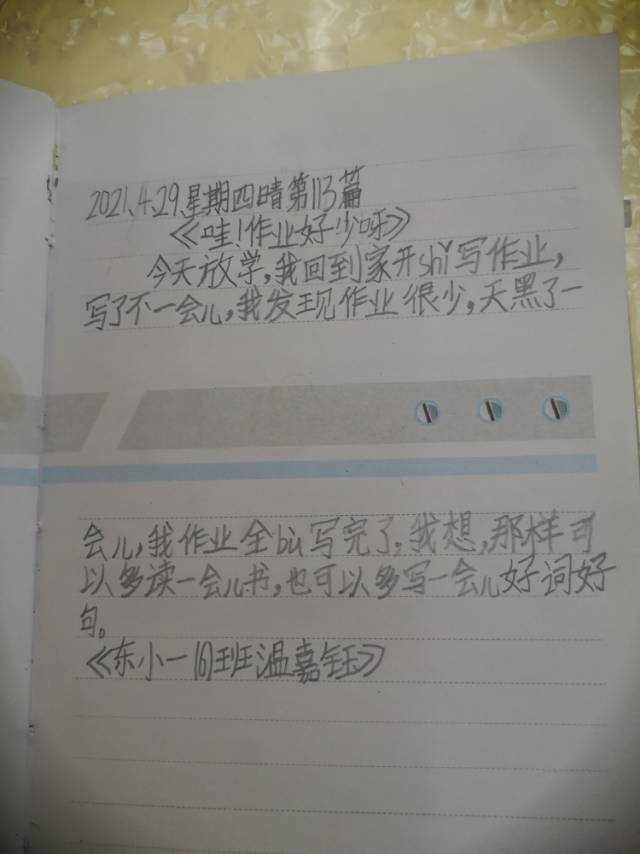 2021.4.29.星期四晴第113篇
《哇!作业好少呀》
今天放学,我回到家开shǐ写作业,
写了不一会儿,我发现作业很少,天黑了一
会儿,我作业全bù写完了,我想,那样可
以多读一会儿书,也可以多写一会儿好词好
句。
《东小一(6)班温嘉钰》